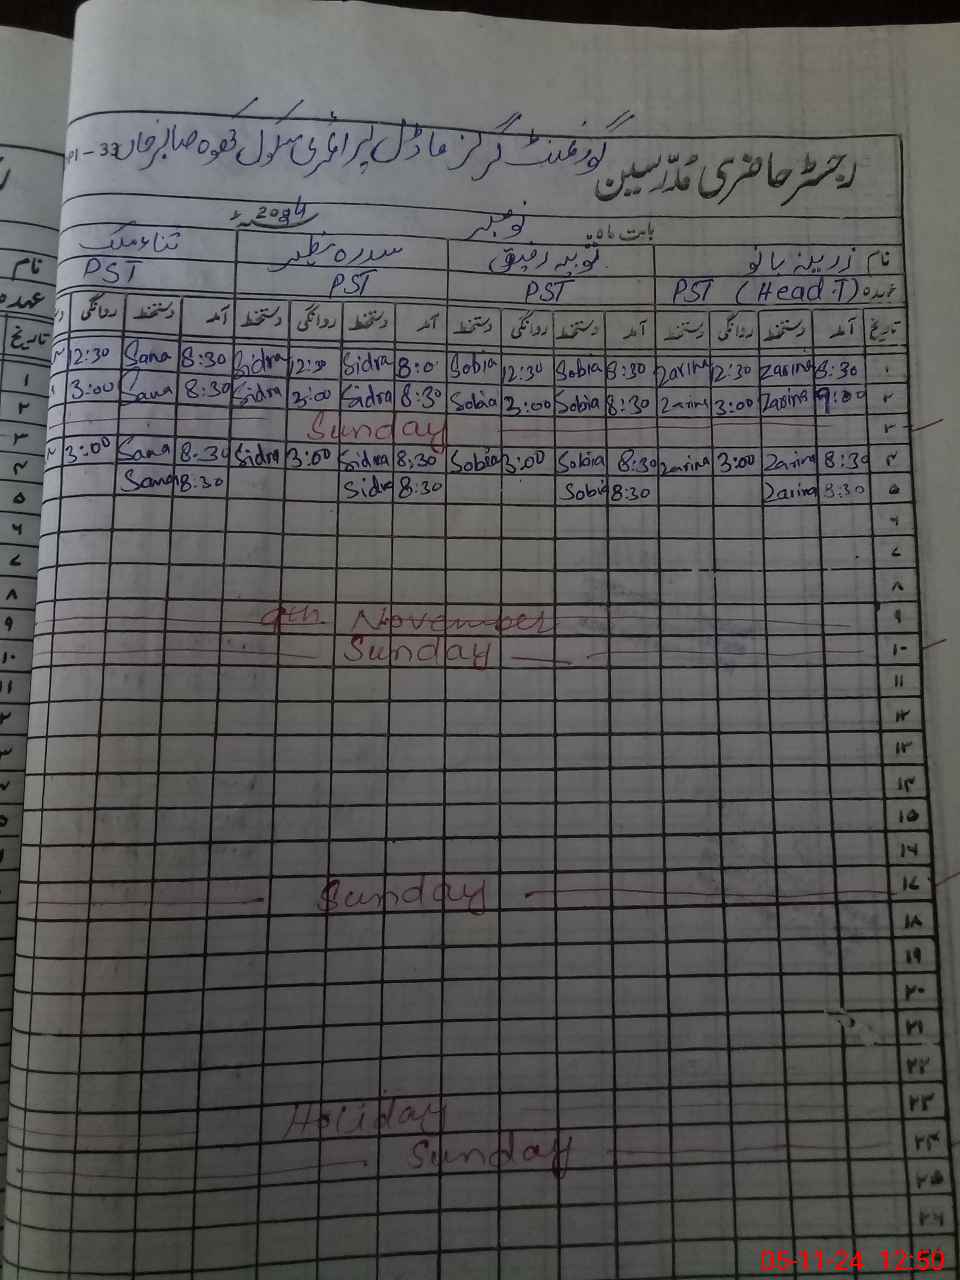 رجسٹر حاضری مدرسین گورنمنٹ گرلز ماڈل پرائمری سکول
بابت ماہ نومبر 2024
نام زرینہ بانو ثوبیہ رفیق سدرہ نظیر ثناء ملک
عہدہ PST (Head.T) PST PST PST
تاریخ آمد دستخط روانگی دستخط آمد دستخط روانگی دستخط آمد دستخط روانگی دستخط آمد دستخط روانگی
۱ 8:30 Zarina 12:30 Zarina 8:30 Sobia 12:30 Sobia Sidra 12:30 Sidra 8:30 Sana 12:30
۲ 9:00 Zarina 3:00 Zarina 8:30 Sobia 3:00 Sobia 8:30 Sidra 3:00 Sidra 8:30 Sana 3:00
۳ Sunday
۴ 8:30 Zarina 3:00 Zarina 8:30 Sobia 3:00 Sobia 8:30 Sidra 3:00 Sidra 8:30 Sana 3:00
۵ 8:30 Zarina 8:30 Sobia 8:30 Sidra 8:30 Sana
۶
۷
۸
۹ 9th November
۱۰ Sunday
۱۱
۱۲
۱۳
۱۴
۱۵
۱۶
۱۷ Sunday
۱۸
۱۹
۲۰
۲۱
۲۲
۲۳ Holiday
۲۴ Sunday
۲۵
۲۶
05-11-24 12:50